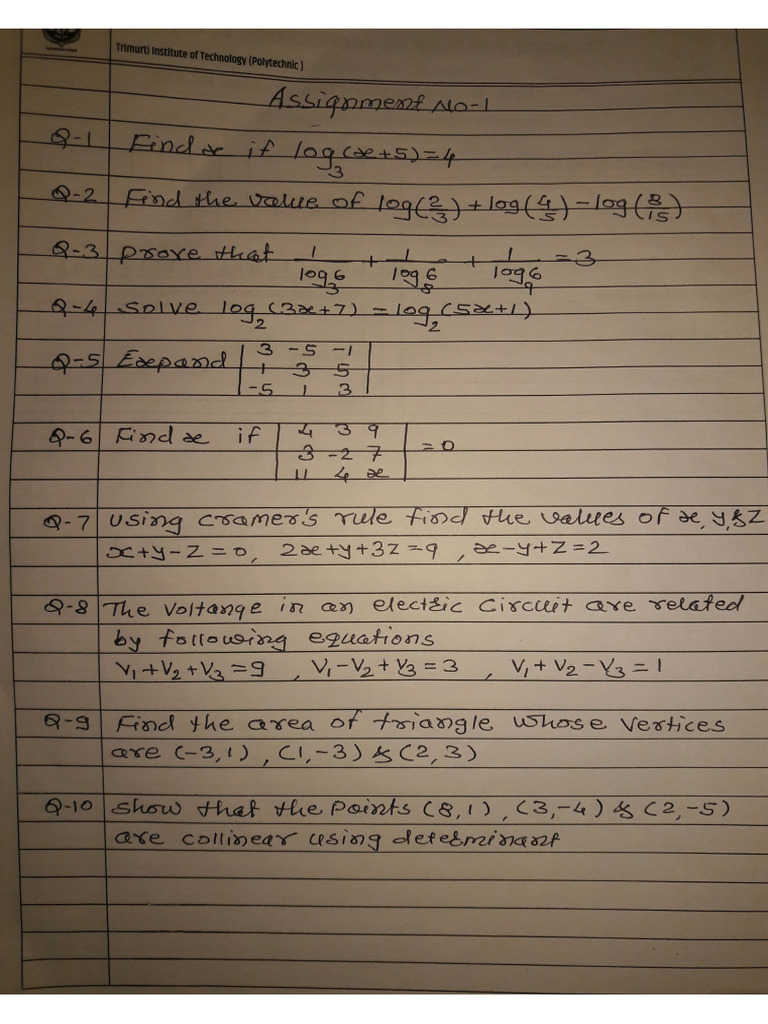 Trimurti Institute of Technology (Polytechnic )
Assignment No-1
Q-1 Find x if log₃(x+5)=4
Q-2 Find the value of log(2/3)+log(4/5)-log(8/15)
Q-3 prove that 1/log₃6 + 1/log₈6 + 1/log₉6 = 3
Q-4 solve log₂(3x+7) = log₂(5x+1)
Q-5 Expand | 3 -5 -1 |
| 1 3 5 |
| -5 1 3 |
Q-6 Find x if | 4 3 9 |
| 3 -2 7 | = 0
| 11 4 x |
Q-7 using cramer's rule find the values of x, y, & z
x+y-z=0, 2x+y+3z=9 , x-y+z=2
Q-8 The voltange in an electric circuit are related
by following equations
V₁+V₂+V₃=9 , V₁-V₂+V₃=3 , V₁+V₂-V₃=1
Q-9 Find the area of triangle whose vertices
are (-3,1) , (1,-3) & (2,3)
Q-10 show that the points (8,1) , (3,-4) & (2,-5)
are collinear using determinant